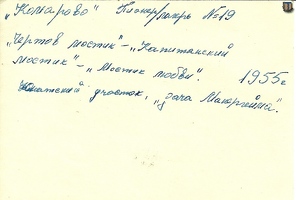 „Комарово" Пионерлагерь №19
„Чертов мостик" – „Капитанский
мостик" – „Мостик любви". 1955г
участок, „дача Макаргейма".